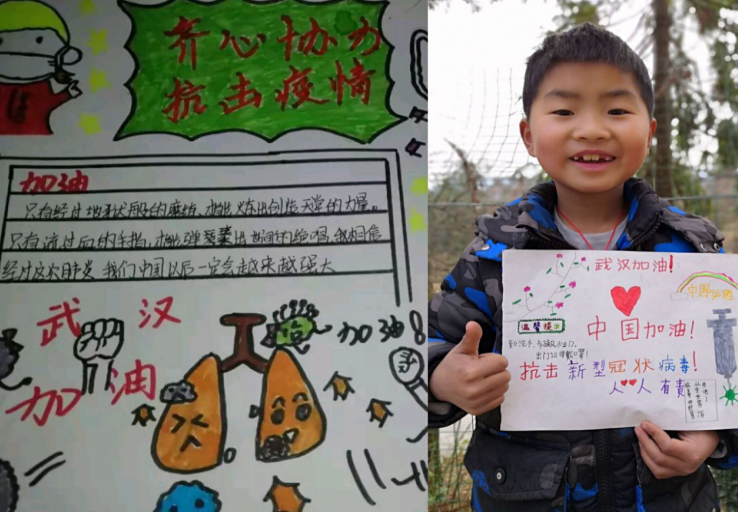 齐心协力
抗击疫情
加油
只有经过地狱般的磨练，才能炼出创造天堂的力量。
只有流过血的手指，才能弹奏出世间的绝唱，我相信
我们中国以后一定会越来越强大
武汉
加油
加油！
武汉加油！
中国
温馨提示
中国加油！
抗击新型冠状病毒！
人人有责